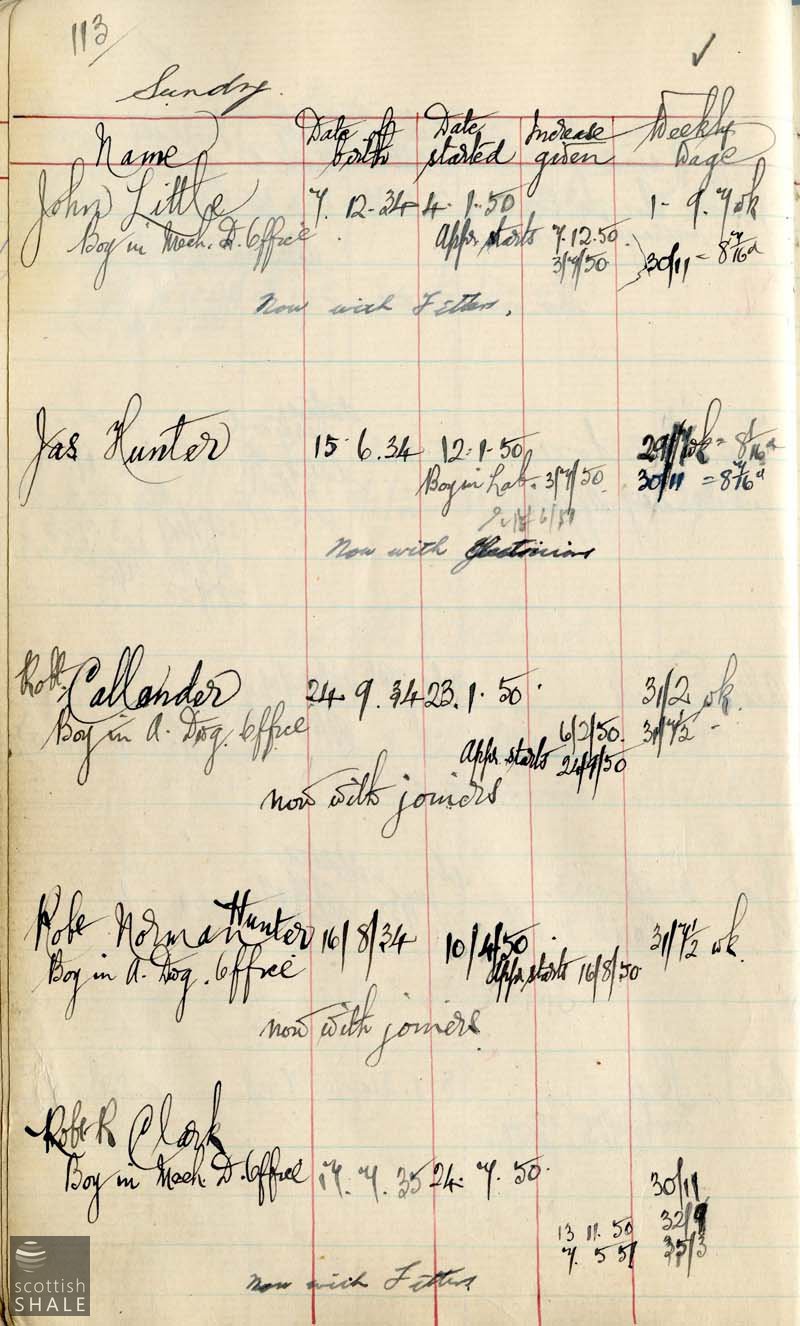 113/ ✓
Sundry.
Name Date of birth Date started Increase given Weekly Wage
John Little 7. 12-34 4. 1-50 1-9.7 wk
Boy in Mech. D. Office Appr. starts 7.12.50
3/7/50 30/11 = 8 7/16 d
Now with Fitters.
Jas Hunter 15-6.34 12-1-50 29/7 wk = 8 1/16 d
Boy in Lab. 3/7/50. 30/11 = 8 7/16 d
Now with Electricians
Robt. Callander 24 9.34 23.1.50 31/2 wk.
Boy in A. Drg. Office 6/2/50. 31/7½
Appr. starts 24/9/50
now with joiners
Robt Norman Hunter 16/8/34 10/4/50 31/7½ wk.
Boy in A. Drg. Office Appr. starts 16/8/50
now with joiners.
Robt R Clark
Boy in Mech. D. Office 17. 7. 35 24. 7. 50. 30/11
13 11. 50 32/9
7. 5 51 35/3
Now with Fitters
scottish
SHALE